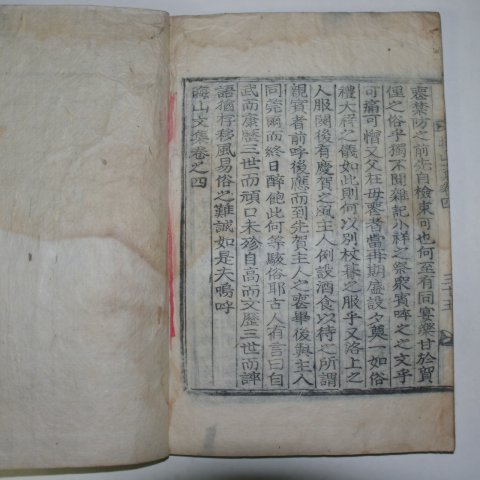 喪禁防之前先自檢束可也何至有同宴樂甘於貿
俚之俗乎獨不聞雜記小祥之祭衆賓啐之之文乎
可痛可憎又父在母喪者當再期盛設々奠一如俗
禮大祥之儀如此則何以別杖朞之服乎又洛上之
人服闋後有慶賀之風主人例設酒食以待之所謂
親賓者前呼後應而到先賀主人之喪畢後與主人
同莞爾而終日醉飽此何等駭俗耶古人有言曰自
武而康歷三世而頑囗未殄自高而文歷三世而誶
語猶存移風易俗之難誠如是夫嗚呼
晦山文集卷之四